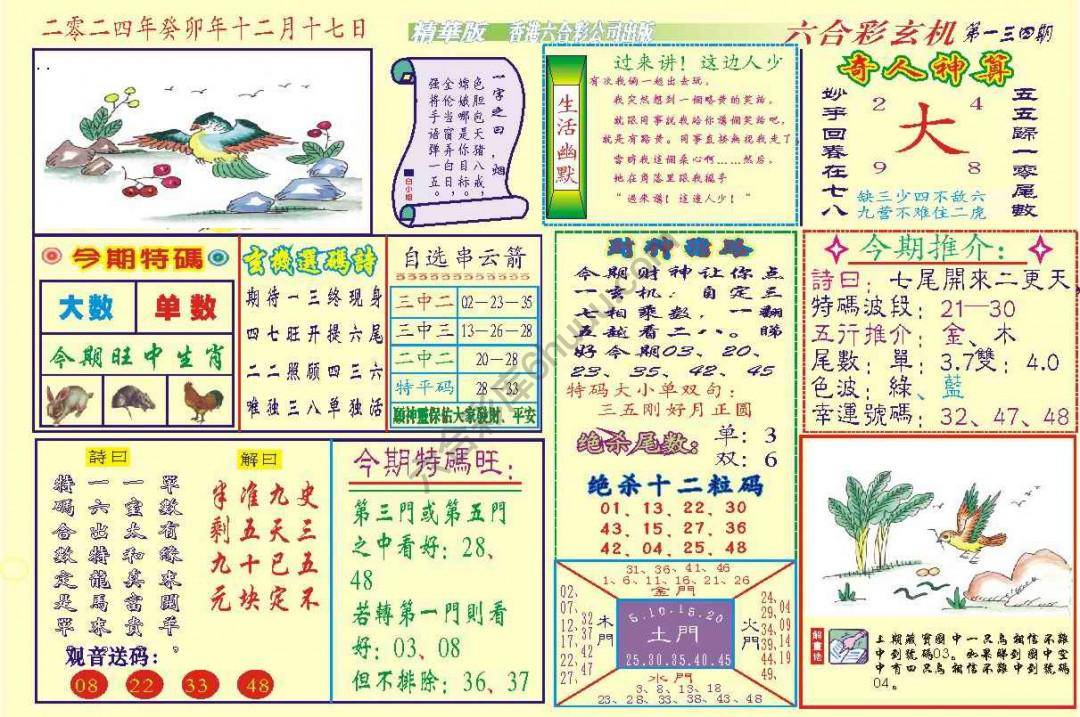 二零二四年癸卯年十二月十七日
精華版 香港六合彩公司出版
六合彩玄机 第一三四期
一字之曰，烟
色胆包天猪八戒，
嫦娥哪是你目标。
全伦当窗弄白八，
强将手语弹一五。
白小姐
生活幽默
过来讲！这边人少
有次我俩一起出去玩。
我突然想到一個略黄的笑话。
就跟同事說我给你講個笑话吧，
就是有點黄。同事直接無視我走了，
當時我這個桑心啊……然后，
她在角落里跟我摇手
“過来講！這邊人少！”
奇人神算
妙手回春在七八
2 4
大
9 8
五五歸一零尾數
缺三少四不敌六
九营不难住二虎
今期特碼
大数 单数
今期旺中生肖
玄機選碼詩
期待一三终现身
四七旺开提六尾
二二照顾四三六
唯独三八单独活
自选串云箭
三中二 02—23—35
三中三 13—26—28
二中二 20—28
特平码 28—33
願神靈保佑大家發財、平安
財神指路
今期财神让你点
一玄机：自定三
七相乘数，一翻
五越看二八。睇
好今期03、20、
23、35、42、45
特码大小单双句：
三五刚好月正圆
绝杀尾数：
单：3
双：6
绝杀十二粒码
01、13、22、30
43、15、27、36
42、04、25、48
今期推介：
詩曰：七尾開來二更天，
特碼波段：21—30
五行推介：金、木
尾數：單：3.7雙：4.0
色波：綠、藍
幸運號碼：32、47、48
詩曰
單數有緣來開羊，
一室太和真富貴。
一六出特龍馬來，
特碼合數定是單。
解曰
史三五不
九天已定
准五十块
半剩九元
观音送码：
08 22 33 48
今期特碼旺：
第三門或第五門
之中看好：28、
48
若轉第一門則看
好：03、08
但不排除：36、37
31、36、41、46
1、6、11、16、21、26
金門
02、07、12、17、22、27
32 37 42 47
木門
5.10.15.20
土門
25.30.35.40.45
火門
24、29、34、39、44、49、
04 09 14 19
水門
3、8、13、18
23、28、33、38、43、48
解畫佬
上期藏寶圖中一只鳥相信不難
中到號碼03。如果睇到圖中空
中有四只鳥相信不難中到號碼
04。